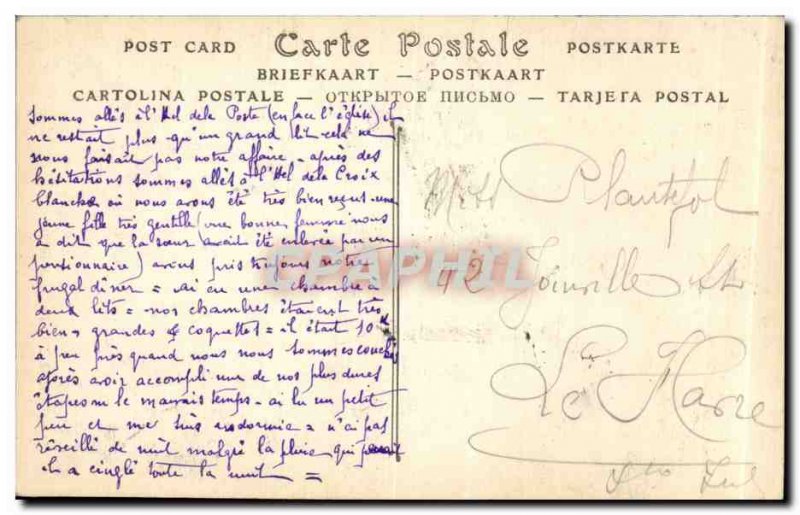 POST CARD Carte Postale POSTKARTE
BRIEFKAART — POSTKAART
CARTOLINA POSTALE — ОТКРЫТОЕ ПИСЬМО — TARJETA POSTAL
Sommes allés à l'Hel de la Poste (en face l'église) il
ne restait plus qu'un grand lit cela ne
nous faisait pas notre affaire - après des
hésitations sommes allés à l'Hel de la Croix
blanche où nous avons été très bien reçus - une
jeune fille très gentille (une bonne femme nous
a dit que la sœur avait été enlevée par un
pensionnaire) avons pris toujours notre
frugal dîner = ai eu une chambre à
deux lits = nos chambres étaient très
bien grandes & coquettes = il était 10h
à peu près quand nous nous sommes couchés
après avoir accompli une de nos plus dures
étapes le mauvais temps - ai lu un petit
peu et me suis endormie = n'ai pas
réveillé de nuit malgré la pluie qui
a cinglé toute la nuit =
Plantefol
92 Joinville Str
Le Havre
EPAPHIL